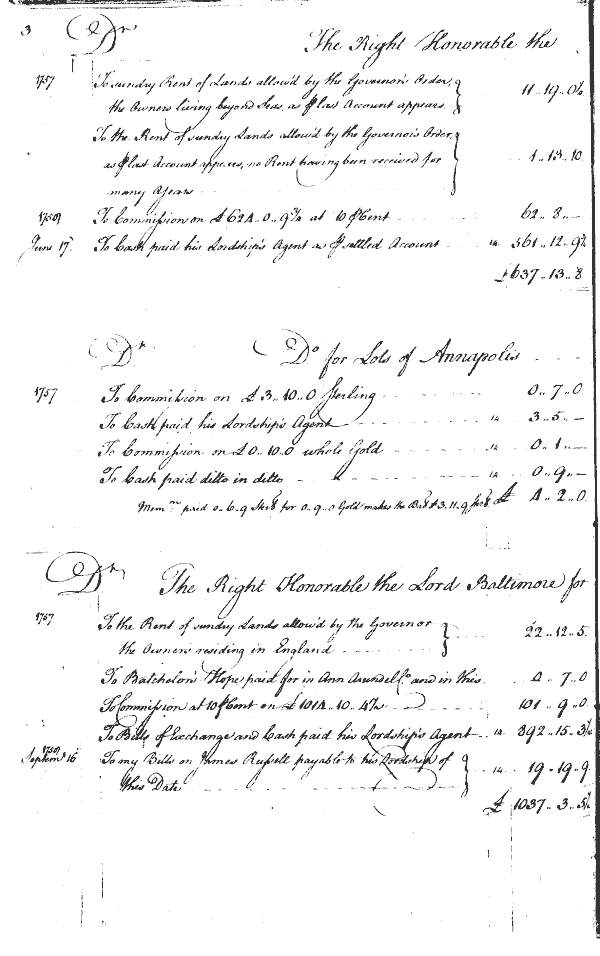 3 Dr The Right Honorable the
1757 To sundry Rent of Lands allow'd by the Governor's Order,
the Owners living beyond Seas, as ⅌ last Account appears 11..19..0½
To the Rent of sundry Lands allow'd by the Governor's Order,
as ⅌ last Account appears, no Rent having been received for 1..13..10
many Years
1759 To Commission on £624..0..9¾ at 10 ⅌ Cent 62..8..—
June 17th To Cash paid his Lordship's Agent as ⅌ settled Account 14 561..12..9½
£637..13..8
Dr Do for Lots of Annapolis
1757 To Commission on £3..10..0 Sterling 0..7..0
To Cash paid his Lordship's Agent 14 3..5..—
To Commission on £0..10..0 whole Gold 14 0..1..—
To Cash paid ditto in ditto 14 0..9..—
Memdm paid 0..6..9 for 0..9..0 Gold makes the £3..11..9 £ 4..2..0
Dr The Right Honorable the Lord Baltimore for
1757 To the Rent of sundry Lands allow'd by the Governor
the Owners residing in England 22..12..5
To Batchelor's Hope paid for in Ann Arundel Co and in this 4..7..0
To Commission at 10 ⅌ Cent on £1014..10..4¾ 101..9..0
To Bills of Exchange and Cash paid his Lordship's Agent 14 892..15..3½
1759
Septemr 16 To my Bills on James Russell payable to his Lordship of 14 19..19..9
this Date
£ 1037..3..5½